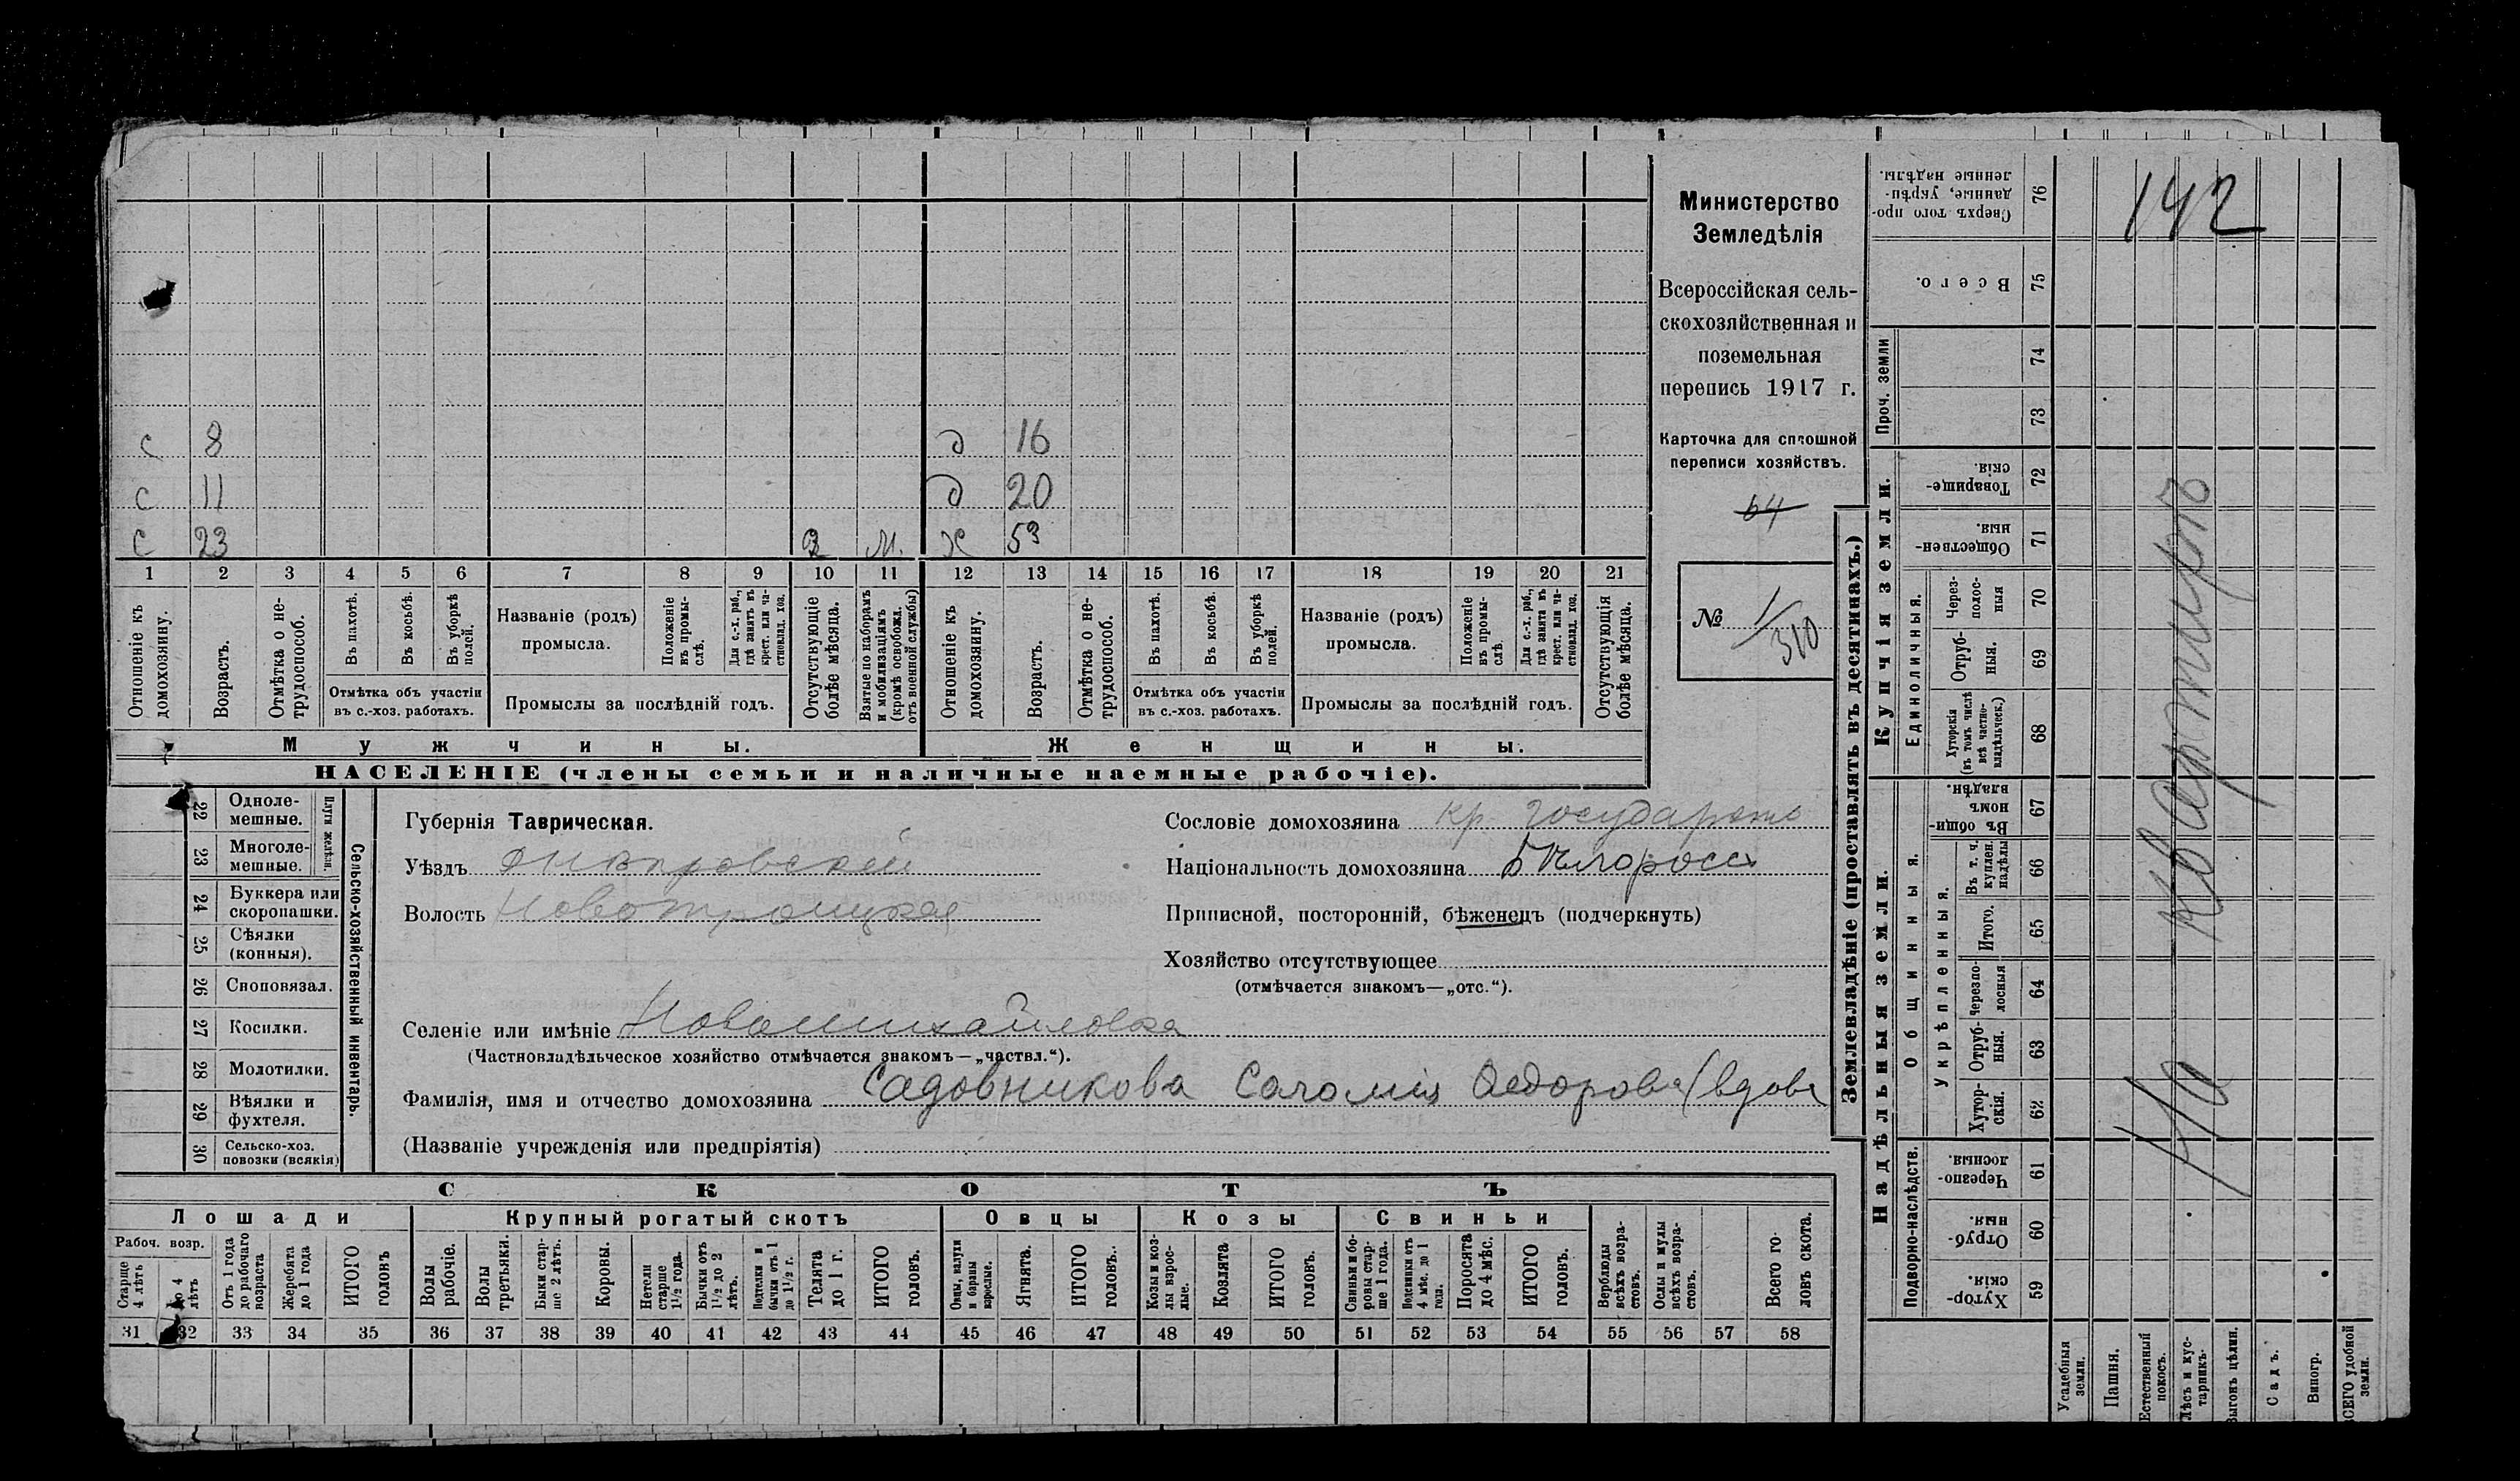 с 8 д 16
с 11 д 20
с 23 2 м. ж 53
1 2 3 4 5 6 7 8 9 10 11 12 13 14 15 16 17 18 19 20 21
Отношеніе къ домохозяину.
Возрастъ.
Отмѣтка о не-трудоспособ.
Въ пахотѣ.
Въ косьбѣ.
Въ уборкѣ полей.
Отмѣтка объ участіи
въ с.-хоз. работахъ.
Названіе (родъ)
промысла.
Положеніе въ промы-слѣ.
Для с.-х. раб., гдѣ занятъ въ крест. или ча-стновлад. хоз.
Промыслы за послѣдній годъ.
Отсутствующіе болѣе мѣсяца.
Взятые по наборамъ и мобилизаціямъ (кромѣ освобожд. отъ военной службы)
Отношеніе къ домохозяину.
Возрастъ.
Отмѣтка о не-трудоспособ.
Въ пахотѣ.
Въ косьбѣ.
Въ уборкѣ полей.
Отмѣтка объ участіи
въ с.-хоз. работахъ.
Названіе (родъ)
промысла.
Положеніе въ промы-слѣ.
Для с.-х. раб., гдѣ занята въ крест. или ча-стновлад. хоз.
Промыслы за послѣдній годъ.
Отсутствующія болѣе мѣсяца.
Мужчины.
Женщины.
НАСЕЛЕНІЕ (члены семьи и наличные наемные рабочіе).
Министерство
Земледѣлія
Всероссійская сель-
скохозяйственная и
поземельная
перепись 1917 г.
Карточка для сплошной
переписи хозяйствъ.
64
№ 1/310
22 Одноле-мешные.
Плуги желѣзн.
23 Многоле-мешные.
24 Буккера или скоропашки.
25 Сѣялки (конныя).
26 Сноповязал.
27 Косилки.
28 Молотилки.
29 Вѣялки и фухтеля.
30 Сельско-хоз. повозки (всякія)
Сельско-хозяйственный инвентарь.
Губернія Таврическая.
Уѣздъ Днѣпровскій
Волость Новотроицкая
Селеніе или имѣніе Новомихайловка
(Частновладѣльческое хозяйство отмѣчается знакомъ—„частвл.“).
Фамилія, имя и отчество домохозяина Садовникова Саломія Федорова (вдова
(Названіе учрежденія или предпріятія)
Сословіе домохозяина кр.
Національность домохозяина бѣлоросс
Приписной, посторонній, бѣженецъ (подчеркнуть)
Хозяйство отсутствующее
(отмѣчается знакомъ—„отс.“).
СКОТЪ
Лошади
Крупный рогатый скотъ
Овцы
Козы
Свиньи
Рабоч. возр.
Старше 4 лѣтъ
До 4 лѣтъ
Отъ 1 года до рабочаго возраста
Жеребята до 1 года
ИТОГО головъ
Волы рабочіе.
Волы третьяки.
Быки стар-ше 2 лѣтъ.
Коровы.
Нетели старше 1½ года.
Бычки отъ 1½ до 2 лѣтъ.
Подтелки и бычки отъ 1 до 1½ г.
Телята до 1 г.
ИТОГО головъ.
Овцы, валухи и бараны взрослые.
Ягнята.
ИТОГО головъ.
Козы и коз-лы взрос-лые.
Козлята
ИТОГО головъ.
Свиньи и бо-ровы стар-ше 1 года.
Подсвинки отъ 4 мѣс. до 1 года.
Поросята до 4 мѣс.
ИТОГО головъ.
Верблюды всѣхъ возра-стовъ.
Ослы и мулы всѣхъ возра-стовъ.
Всего го-ловъ скота.
31 32 33 34 35 36 37 38 39 40 41 42 43 44 45 46 47 48 49 50 51 52 53 54 55 56 57 58
Землевладѣніе (проставлять въ десятинахъ.)
Купчія земли.
Надѣльныя земли.
Сверхъ того про-данные, укрѣп-ленные надѣлы. 76
Всего. 75
Проч. земли
74
73
Товарище-скія. 72
Обществен-ныя. 71
Единоличныя.
Через-полос-ныя 70
Отруб-ныя. 69
Хуторскія (въ томъ числѣ всѣ частно-владѣльческ.) 68
Общинныя.
Въ общин-номъ владѣн. 67
Укрѣпленныя.
Въ т. ч. куплен. надѣлы 66
Итого. 65
Черезпо-лосныя 64
Отруб-ныя. 63
Хутор-скія. 62
Подворно-наслѣдств.
Черезпо-лосныя. 61
Отруб-ныя. 60
Хутор-скія. 59
Усадебныя земли.
Пашня.
Естественный покосъ.
Лѣсъ и кус-тарникъ.
Выгонъ цѣлин.
Садъ.
Виногр.
ВСЕГО удобной земли.
142
На квартирѣ